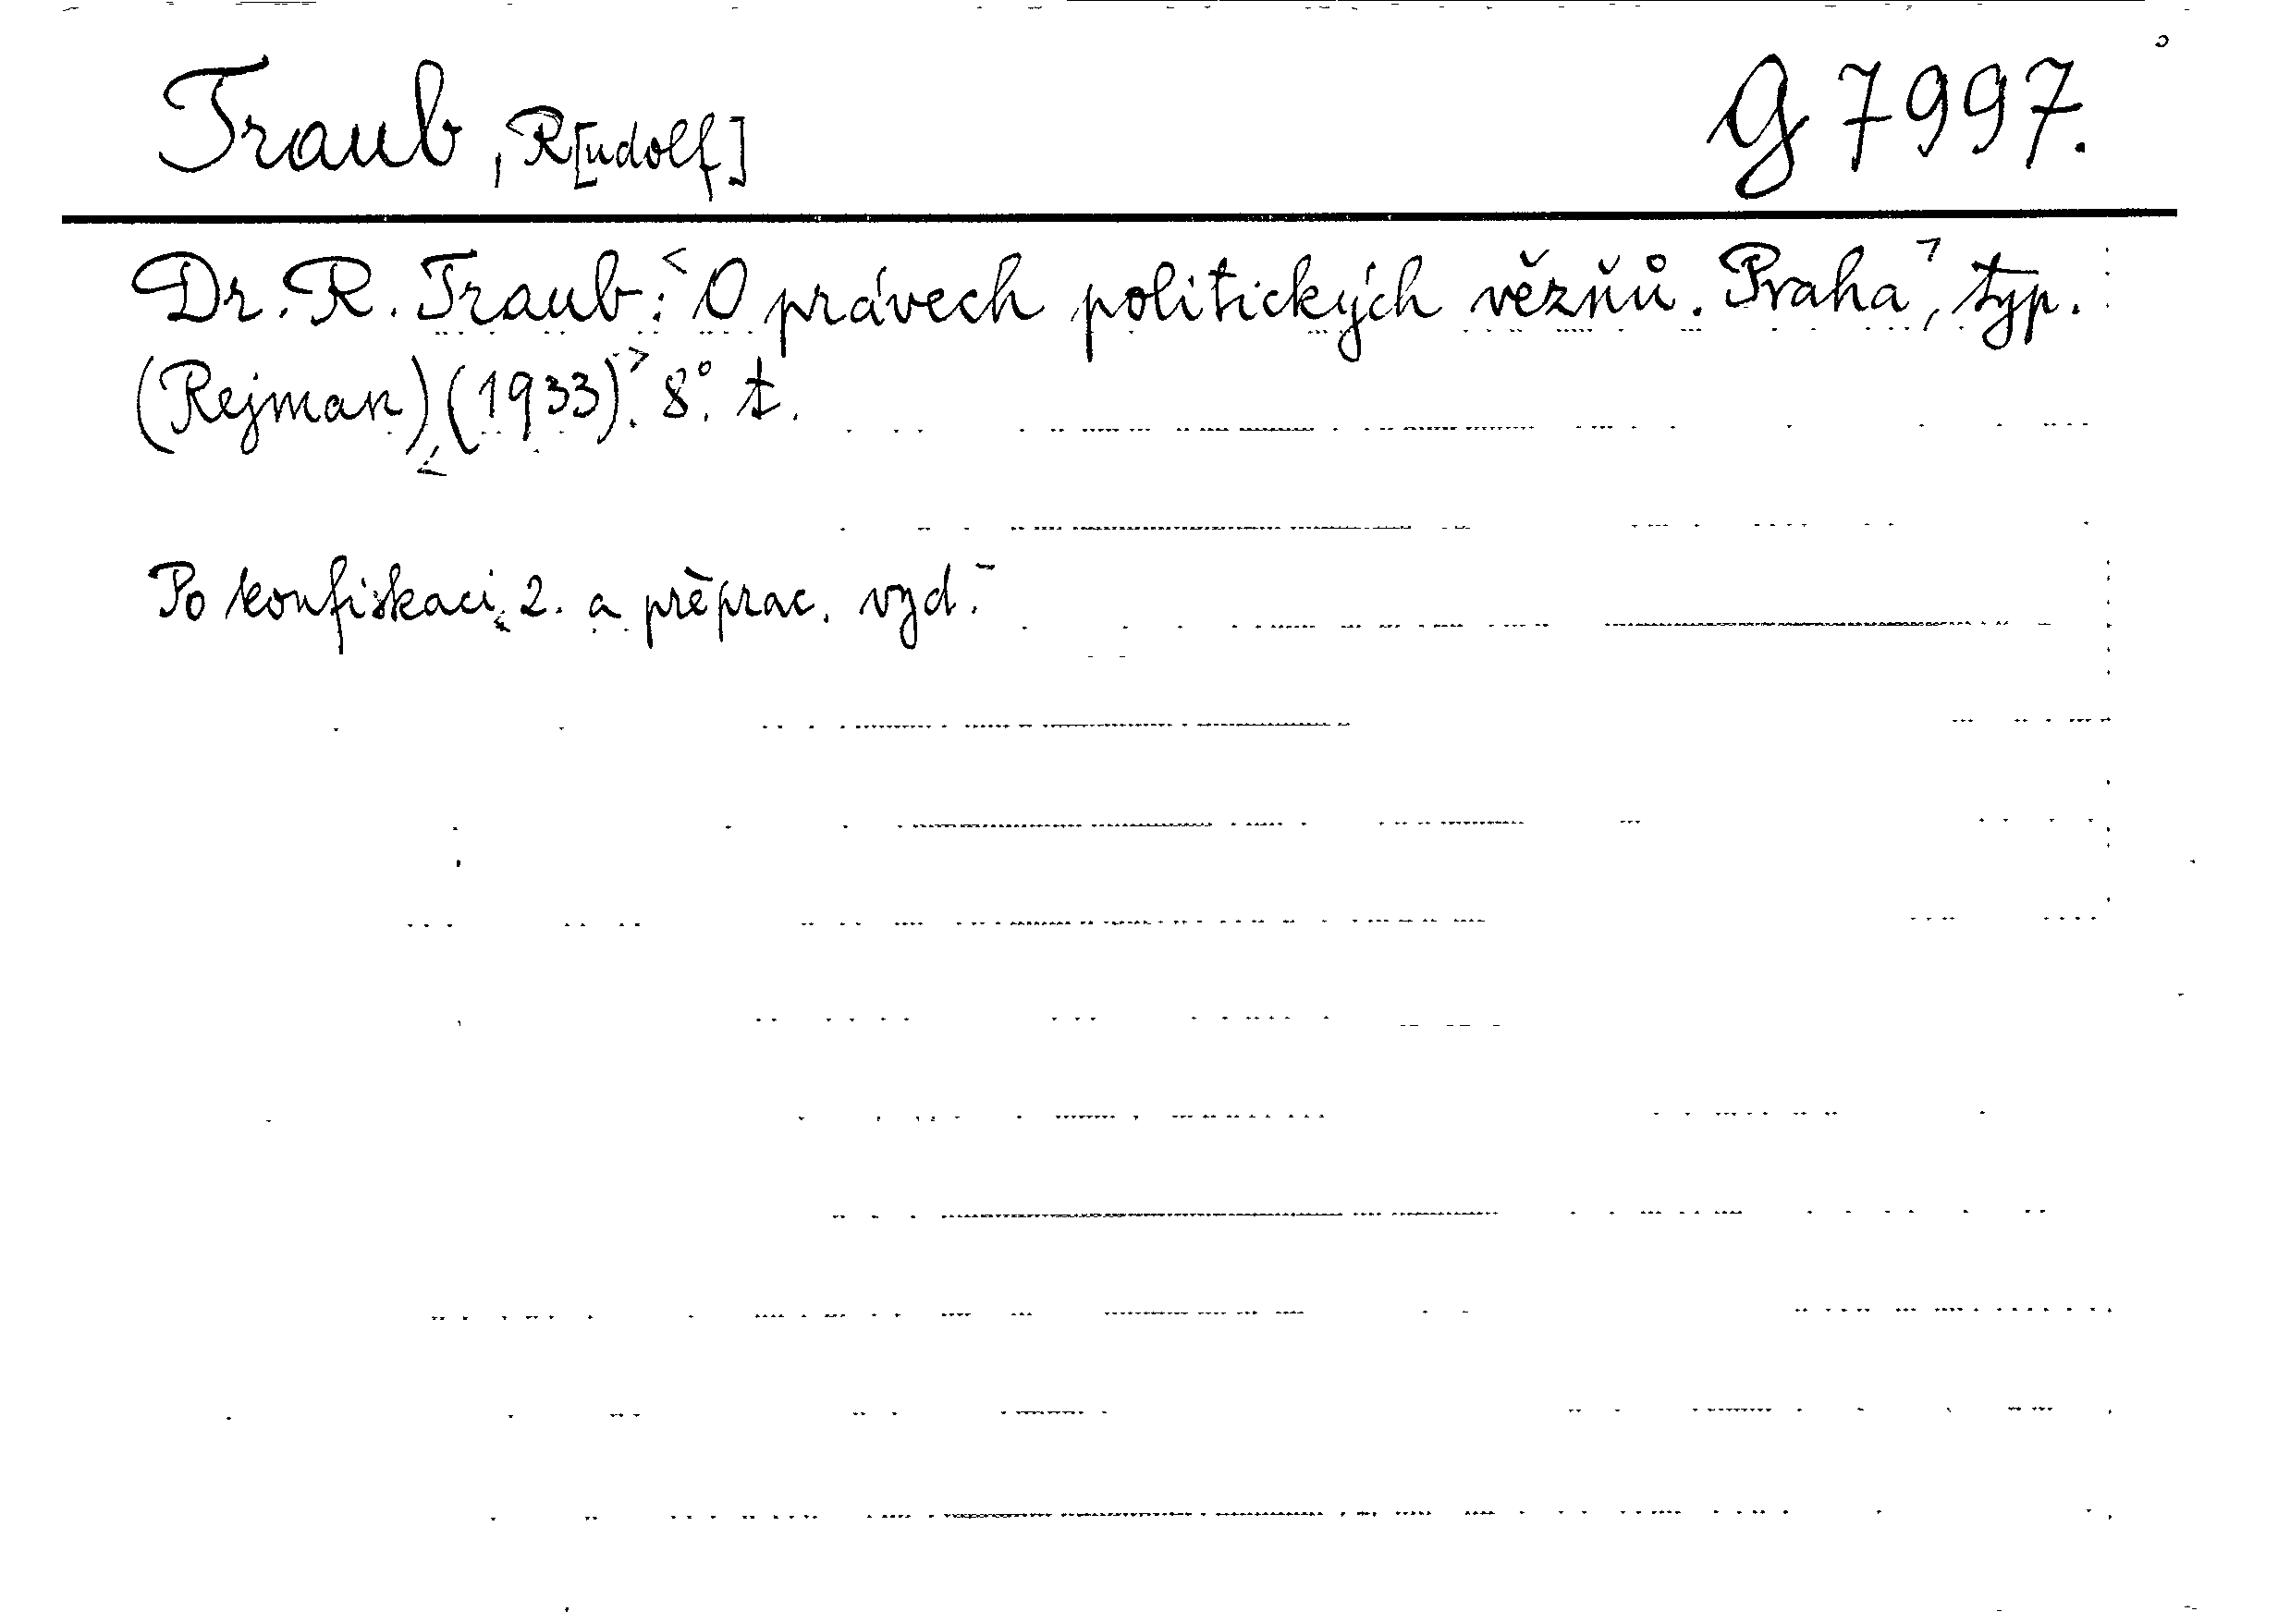 Traub, R[udolf] G 7997.
Dr. R. Traub: <O právech politických věžňů. Praha>, typ.
(Rejman) <(1933)>. 8°. t.
Po konfiskaci 2. a přeprac. vyd.